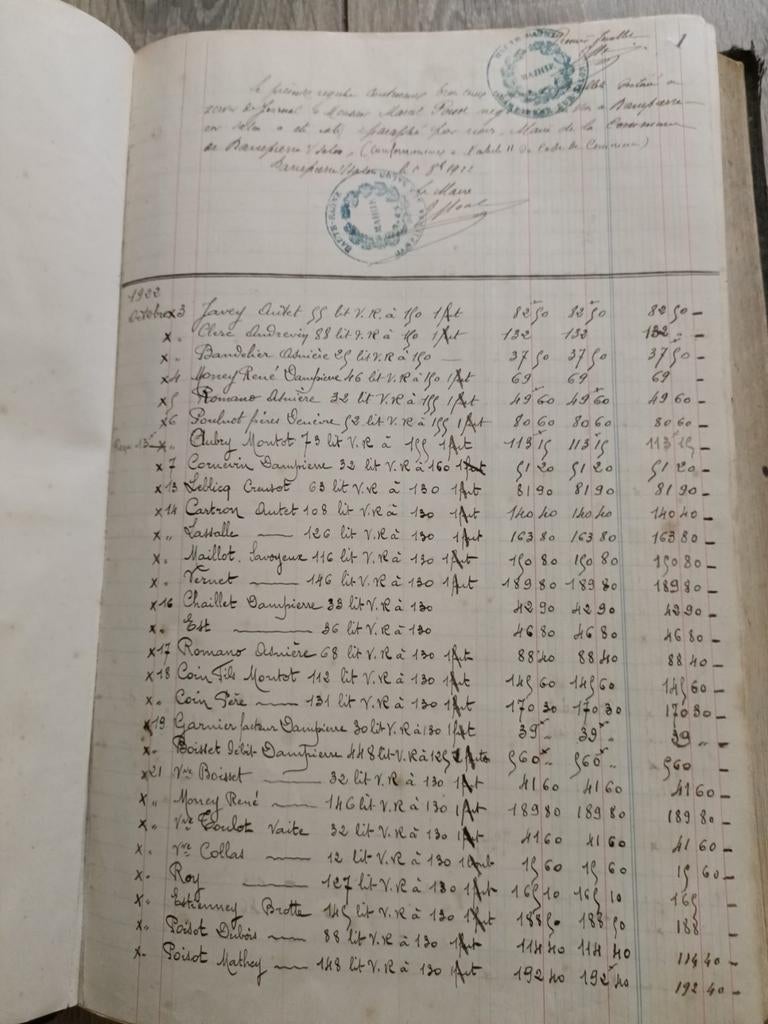 1
MAIRIE
Le présent registre contenant
servir de Journal à Monsieur Marcel Poisot à Dampierre
sur Salon a été coté et paraphé par nous, Maire de la Commune
de Dampierre s/ Salon, (conformément à l'article 11 du Code de Commerce)
Dampierre s/ Salon, le
Le Maire
MAIRIE
1922
Octobre x 3 Javey Autet 55 lit V.R. à 150 1 fut 82 50 82 50 82 50 –
x " Clerc Audrevin 88 lit V.R à 150 1 fut 132 132 132 " –
x " Baudelier Asnière 25 lit V.R à 150 — 37 50 37 50 37 50 –
x 4 Morrey René Dampierre 46 lit V.R à 150 1 fut 69 69 69 –
x 5 Romano Asnière 32 lit V.R à 155 1 fut 49 60 49 60 49 60 –
x 6 Poulnot frères Denèvre 52 lit V.R à 155 1 fut 80 60 80 60 80 60 –
x " Aubry Montot 73 lit V.R à 155 1 fut 113 15 113 15 113 15 –
x 7 Cornevin Dampierre 32 lit V.R à 160 1 fut 51 20 51 20 51 20 –
x 13 Leblicq Creusot 63 lit V.R à 130 1 fut 81 90 81 90 81 90 –
x 14 Cartron Autet 108 lit V.R à 130 1 fut 140 40 140 40 140 40 –
x " Lassalle — 126 lit V.R à 130 1 fut 163 80 163 80 163 80 –
x " Maillot Savoyeux 116 lit V.R à 130 1 fut 150 80 150 80 150 80 –
x " Vernet — 146 lit V.R à 130 1 fut 189 80 189 80 189 80 –
x 16 Chaillet Dampierre 33 lit V.R à 130 42 90 42 90 42 90 –
x " Est — 36 lit V.R à 130 46 80 46 80 46 80 –
x 17 Romano Asnière 68 lit V.R à 130 1 fut 88 40 88 40 88 40 –
x 18 Coin Fils Montot 112 lit V.R à 130 1 fut 145 60 145 60 145 60 –
x " Coin Père — 131 lit V.R à 130 1 fut 170 30 170 30 170 30 –
x 19 Garnier facteur Dampierre 30 lit V.R à 130 1 fut 39 " 39 " 39 " –
x " Boisset débit Dampierre 448 lit V.R à 125 2 futs 560 " 560 " 560 –
x 21 Vve Boisset — 32 lit V.R à 130 1 fut 41 60 41 60 41 60 –
x " Morrey René — 146 lit V.R à 130 1 fut 189 80 189 80 189 80 –
x " Vve Toulot Vaite 32 lit V.R à 130 1 fut 41 60 41 60 41 60 –
x " Vve Collas — 12 lit V.R à 130 15 60 15 60 15 60 –
x " Roy — 127 lit V.R à 130 1 fut 165 10 165 10 165 –
x " Estienney Brotte 145 lit V.R à 130 1 fut 188 50 188 50 188 –
x " Poisot Dubois — 88 lit V.R à 130 1 fut 114 40 114 40 114 40 –
x " Poisot Mathey — 148 lit V.R à 130 1 fut 192 40 192 40 192 40 –